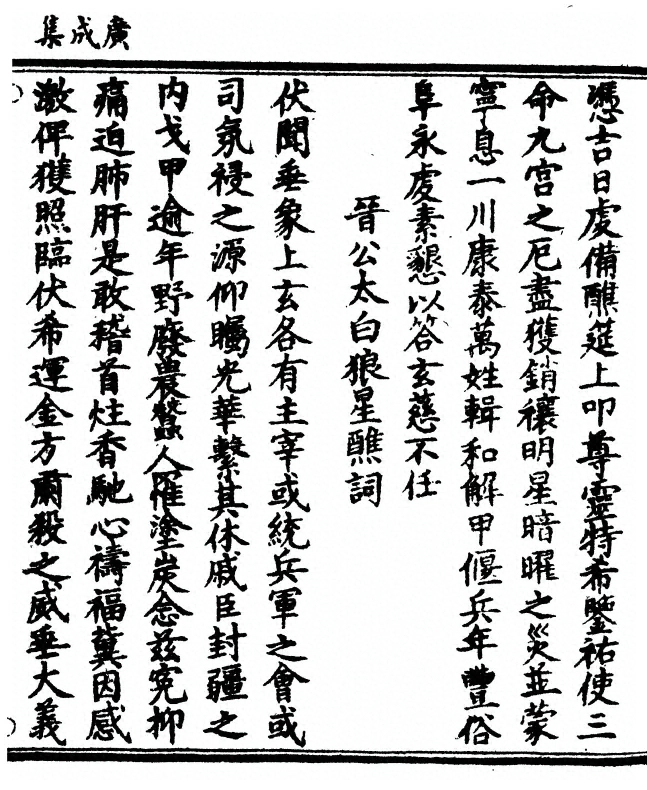 廣成集
憑吉日虔備醮筵上叩尊靈特希鑒祐使三
命九宮之厄盡獲銷禳明星暗曜之災並蒙
寧息一川康泰萬姓輯和解甲偃兵年豐俗
阜永虔素懇以答玄慈不任
晉公太白狼星醮詞
伏聞垂象上玄各有主宰或統兵軍之會或
司氛祲之源仰矚光華繫其休戚臣封疆之
内戈甲逾年野廢農蠶人罹塗炭念茲寃抑
痛迫肺肝是敢稽首炷香馳心禱福冀因感
激俾獲照臨伏希運金方肅殺之威垂大義